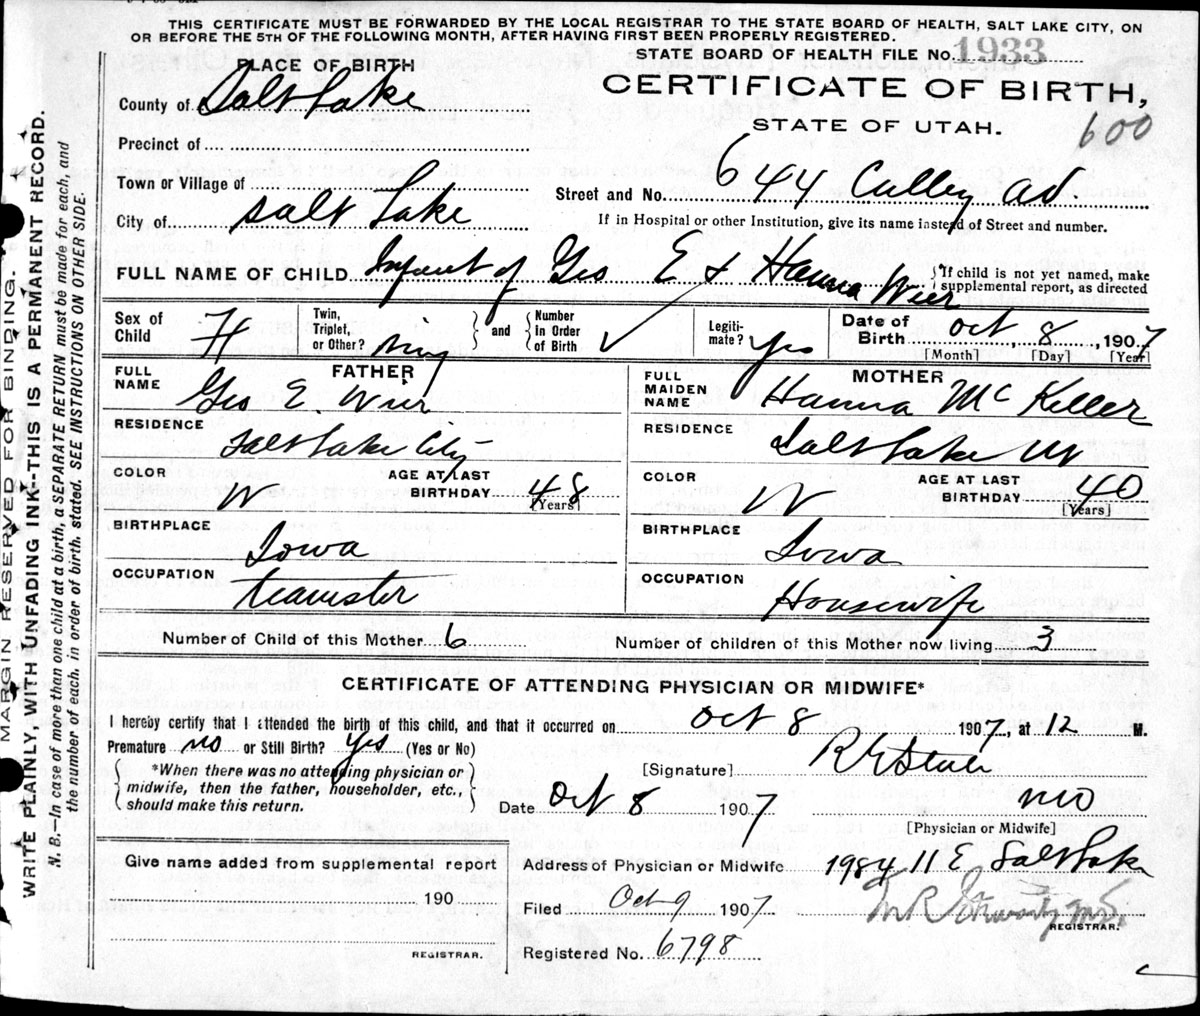 THIS CERTIFICATE MUST BE FORWARDED BY THE LOCAL REGISTRAR TO THE STATE BOARD OF HEALTH, SALT LAKE CITY, ON
OR BEFORE THE 5TH OF THE FOLLOWING MONTH, AFTER HAVING FIRST BEEN PROPERLY REGISTERED.
STATE BOARD OF HEALTH FILE No. 1933
PLACE OF BIRTH
CERTIFICATE OF BIRTH,
County of Salt Lake
STATE OF UTAH.
600
Precinct of
Town or Village of
Street and No. 644 Culley av.
City of Salt Lake
If in Hospital or other Institution, give its name instead of Street and number.
FULL NAME OF CHILD Infant of Geo E & Hanna Wier
If child is not yet named, make supplemental report, as directed
Sex of Child
Twin, Triplet, or Other?
and
Number in Order of Birth
Legiti- mate? yes
Date of Birth Oct 8, 1907
[Month] [Day] [Year]
FATHER
MOTHER
FULL NAME Geo E. Wier
FULL MAIDEN NAME Hanna McKeller
RESIDENCE Salt Lake City
RESIDENCE Salt Lake Ut
COLOR W
AGE AT LAST BIRTHDAY 48 [Years]
COLOR W
AGE AT LAST BIRTHDAY 40 [Years]
BIRTHPLACE Iowa
BIRTHPLACE Iowa
OCCUPATION teamster
OCCUPATION Housewife
Number of Child of this Mother 6
Number of children of this Mother now living 3
CERTIFICATE OF ATTENDING PHYSICIAN OR MIDWIFE*
I hereby certify that I attended the birth of this child, and that it occurred on Oct 8 1907, at 12 M.
Premature no or Still Birth? yes (Yes or No)
*When there was no attending physician or midwife, then the father, householder, etc., should make this return.
[Signature]
Date Oct 8 1907
MD
[Physician or Midwife]
Give name added from supplemental report
190
REGISTRAR.
Address of Physician or Midwife 1984 11 E Salt Lake
Filed Oct 9 1907
REGISTRAR.
Registered No. 6798
MARGIN RESERVED FOR BINDING.
WRITE PLAINLY, WITH UNFADING INK--THIS IS A PERMANENT RECORD.
N. B.—In case of more than one child at a birth, a SEPARATE RETURN must be made for each, and
the number of each, in order of birth, stated. SEE INSTRUCTIONS ON OTHER SIDE.